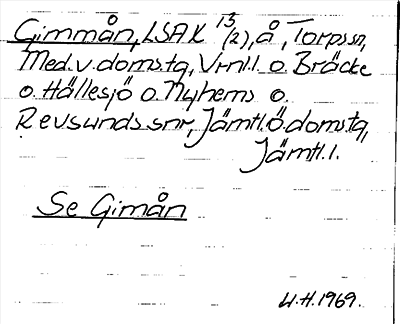 Gimmån, LSA K 13/(2), å, Torps sn,
Med.v.domstg, Vrnl.l. o. Bräcke
o. Hällesjö o. Nyhems o.
Revsunds snr, Jämtl.ö.domstg,
Jämtl.l.
Se Gimån
U.H. 1969.